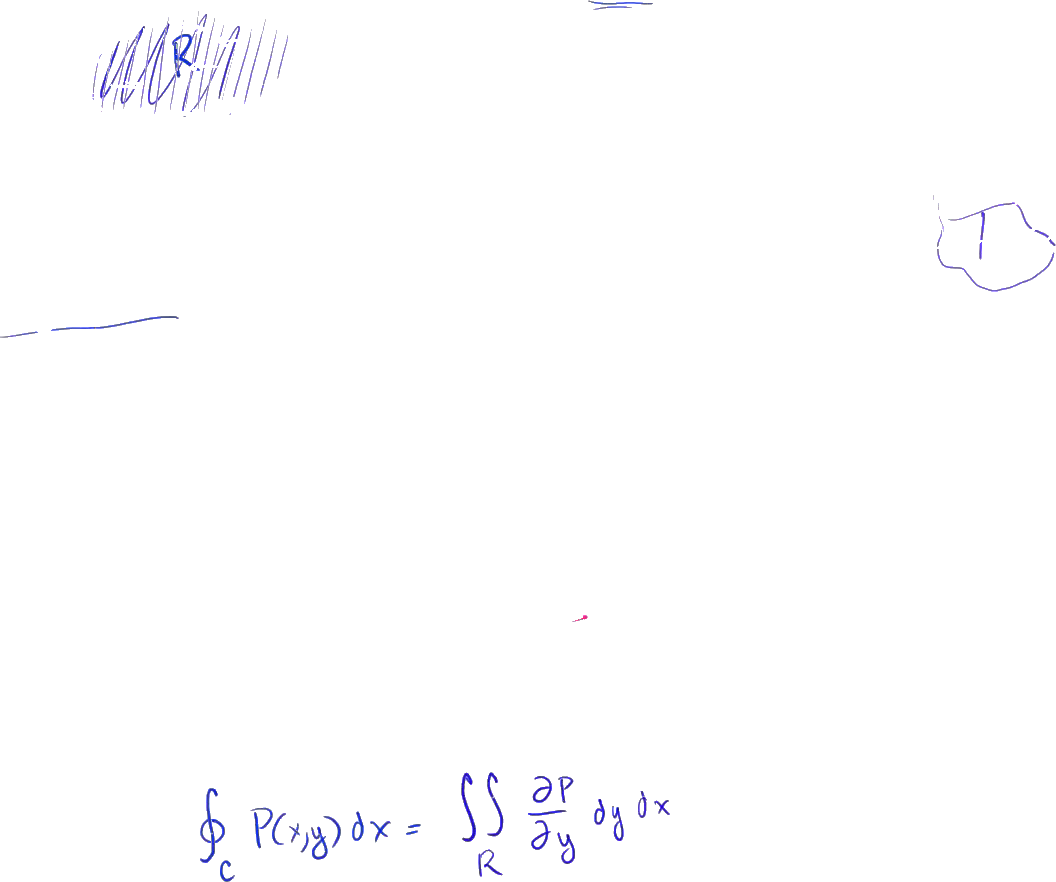 R
∮_C P(x,y) dx = ∬_R ∂P/∂y dy dx